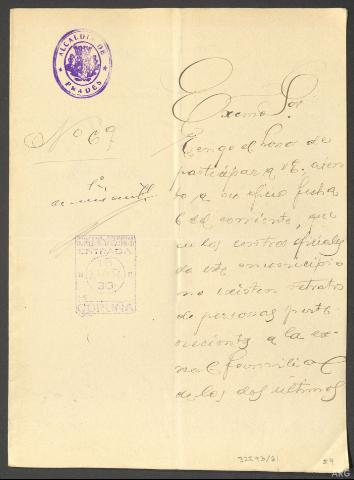 ALCALDIA DE
PRADES
Nº 69
Excmo Sor
Tengo el honor de
participar a VE. 
to a su oficio fecha
6 del corriente, que
en los centros oficiales
de este municipio
no existen retratos
de personas perte-
necientes a la ex-
real familia
de los dos últimos
ENTRADA
MAR
33
CORUÑA
32593/21
59
ARG